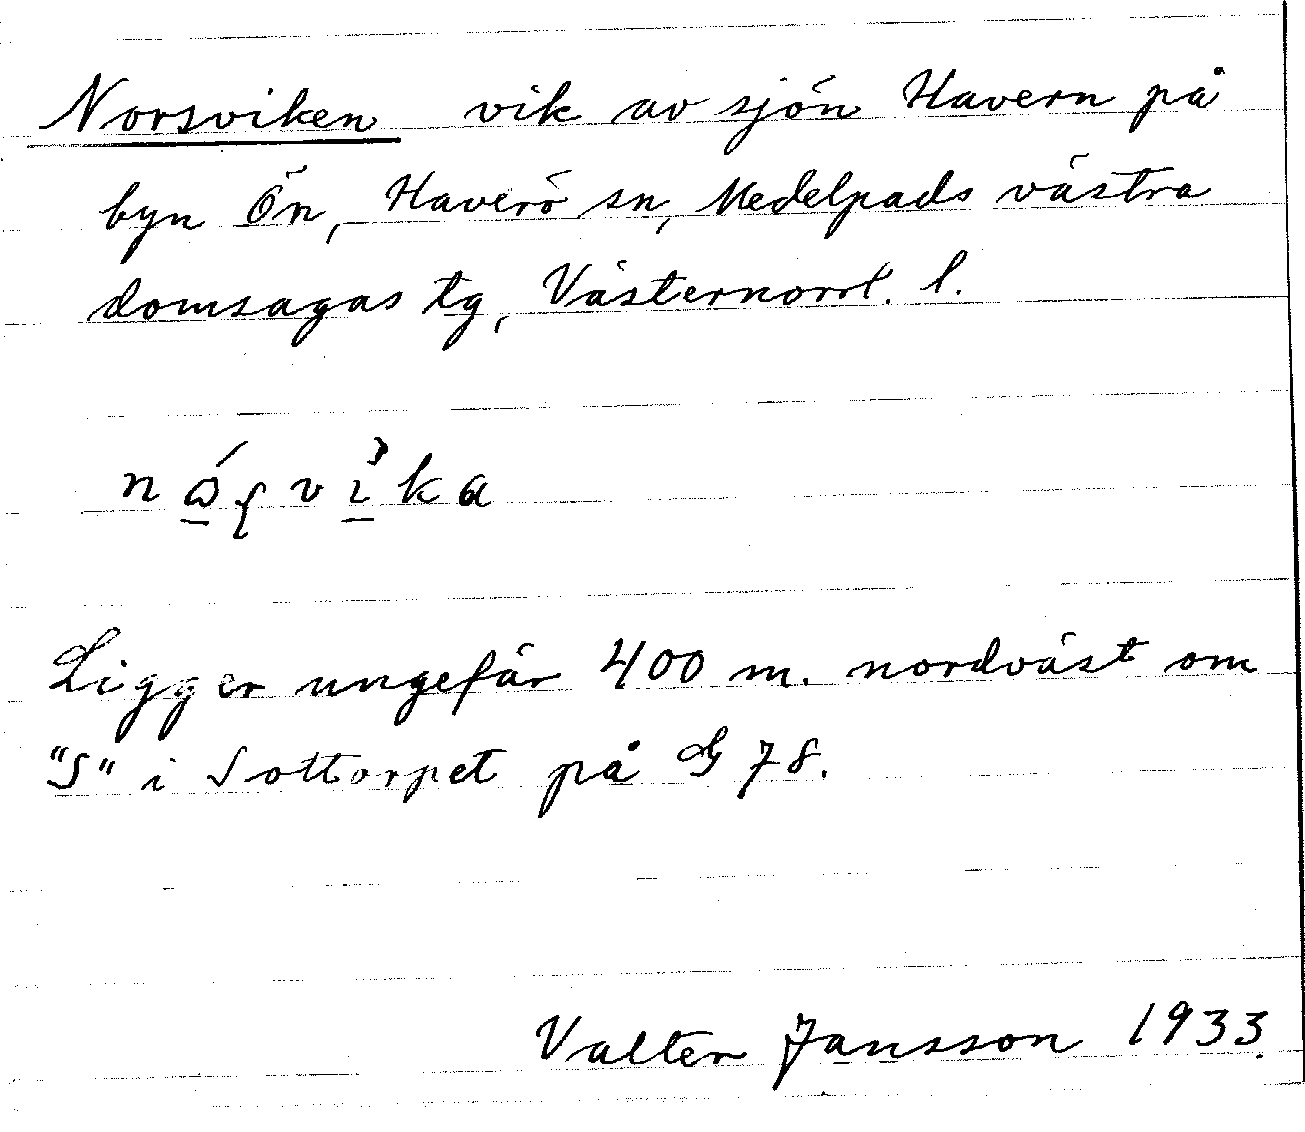 Norsviken vik av sjön Havern på
byn Ön, Haverö sn, Medelpads västra
domsagas tg, Västernorrl. l.
Ligger ungefär 400 m. nordväst om
"S" i Sottorpet på G 78.
Valter Jansson 1933.